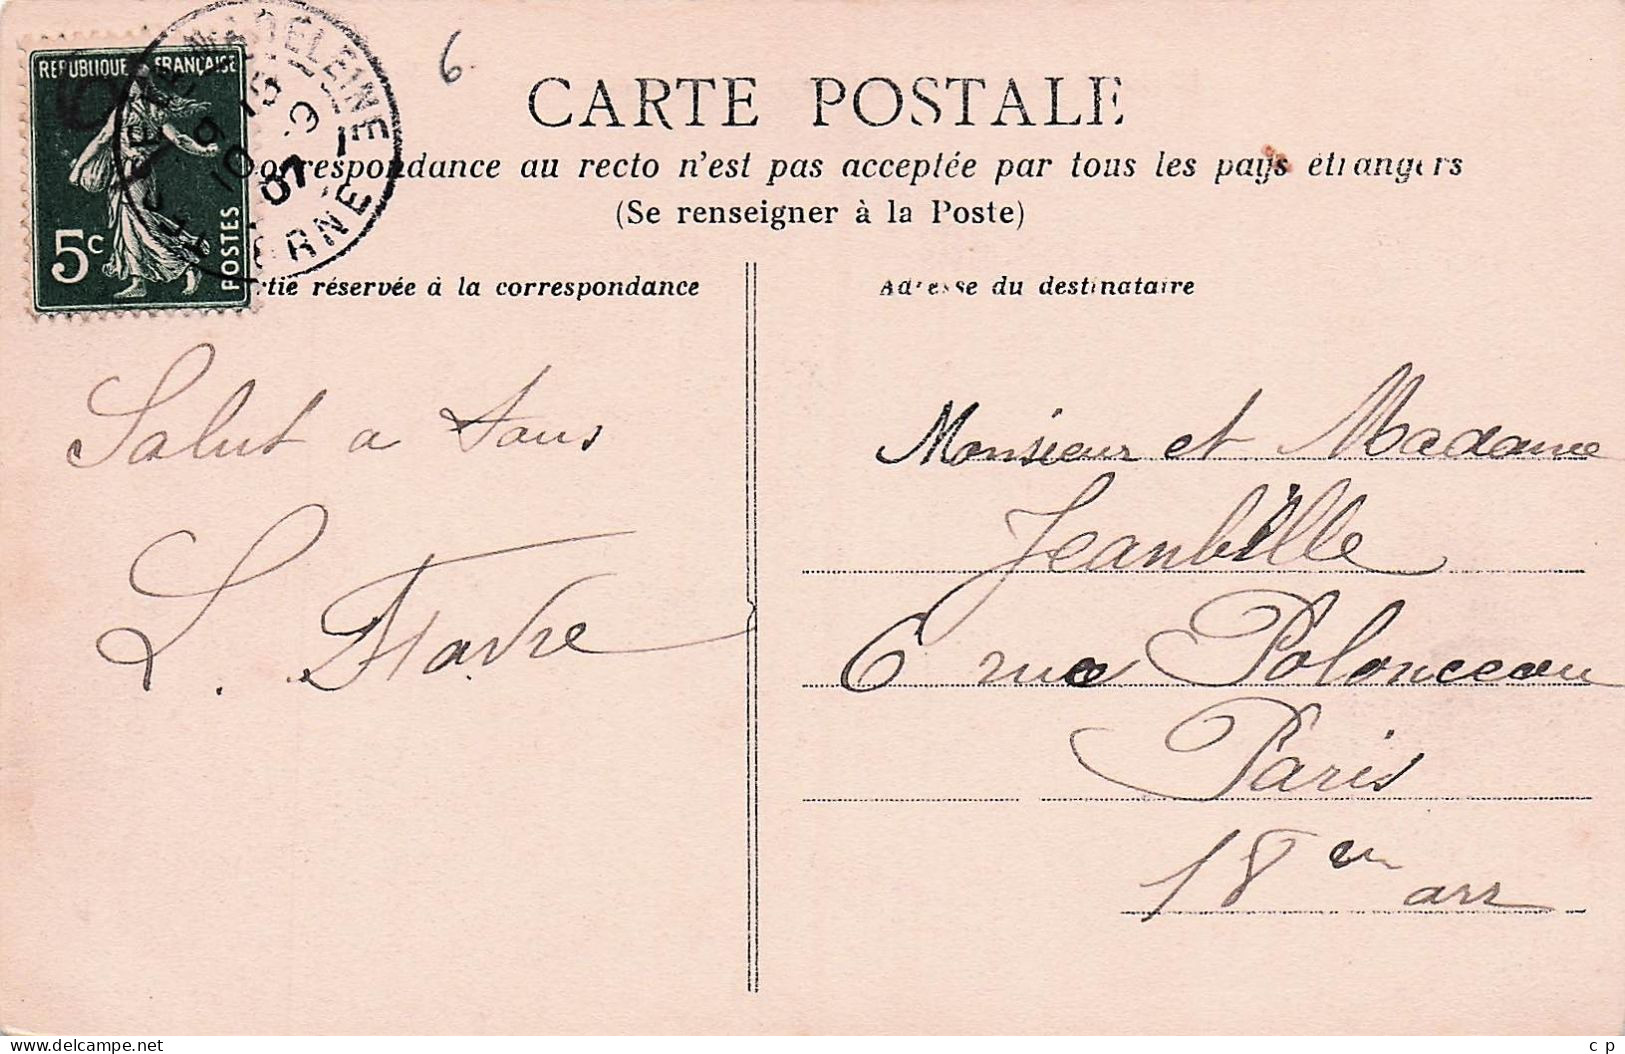 REPUBLIQUE FRANÇAISE
5c
POSTES
MADELEINE
ORNE
07
6
CARTE POSTALE
orrespondance au recto n'est pas acceptée par tous les pays étrangers
(Se renseigner à la Poste)
rtie réservée à la correspondance
Adresse du destinataire
Salut a tous
L. Favre
Monsieur et Madame
Jeanbille
6 rue Polonceau
Paris
18em arr
c p
www.delcampe.net